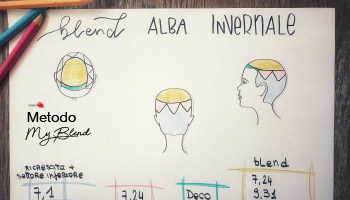 blend ALBA INVERNALE
Metodo
My Blend
RICRESCITA +
SETTORE INFERIORE
blend
7,1
7,24
Deco
7,24
9,31